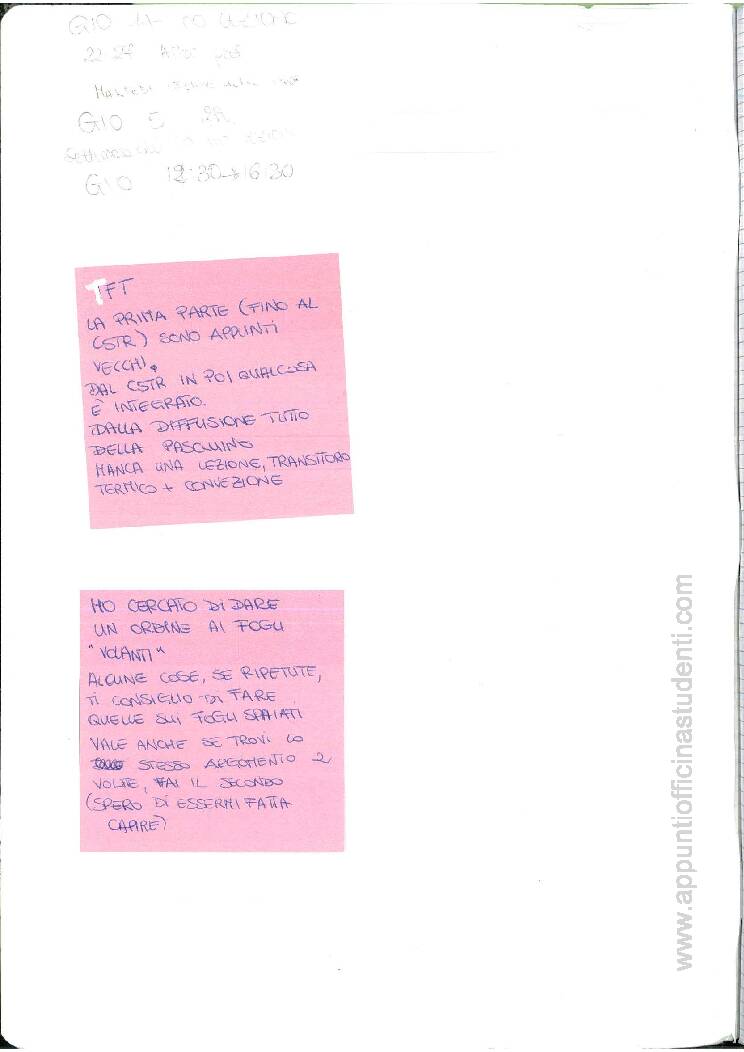 GIO
22-27 prof
GIO 5
GIO 12:30→16:30
TFT
LA PRIMA PARTE (FINO AL
CSTR) SONO APPUNTI
VECCHI.
DAL CSTR IN POI QUALCOSA
È INTEGRATO.
DALLA DIFFUSIONE TUTTO
DELLA PASQUINO
MANCA UNA LEZIONE, TRANSITORO
TERMICO + CONVEZIONE
HO CERCATO DI DARE
UN ORDINE AI FOGLI
"VOLANTI"
ALCUNE COSE, SE RIPETUTE,
TI CONSIGLIO DI FARE
QUELLE SUI FOGLI SPAIATI
VALE ANCHE SE TROVI LO
STESSO ARGOMENTO 2
VOLTE, FAI IL SECONDO
(SPERO DI ESSERMI FATTA
CAPIRE)
www.appuntiofficinastudenti.com